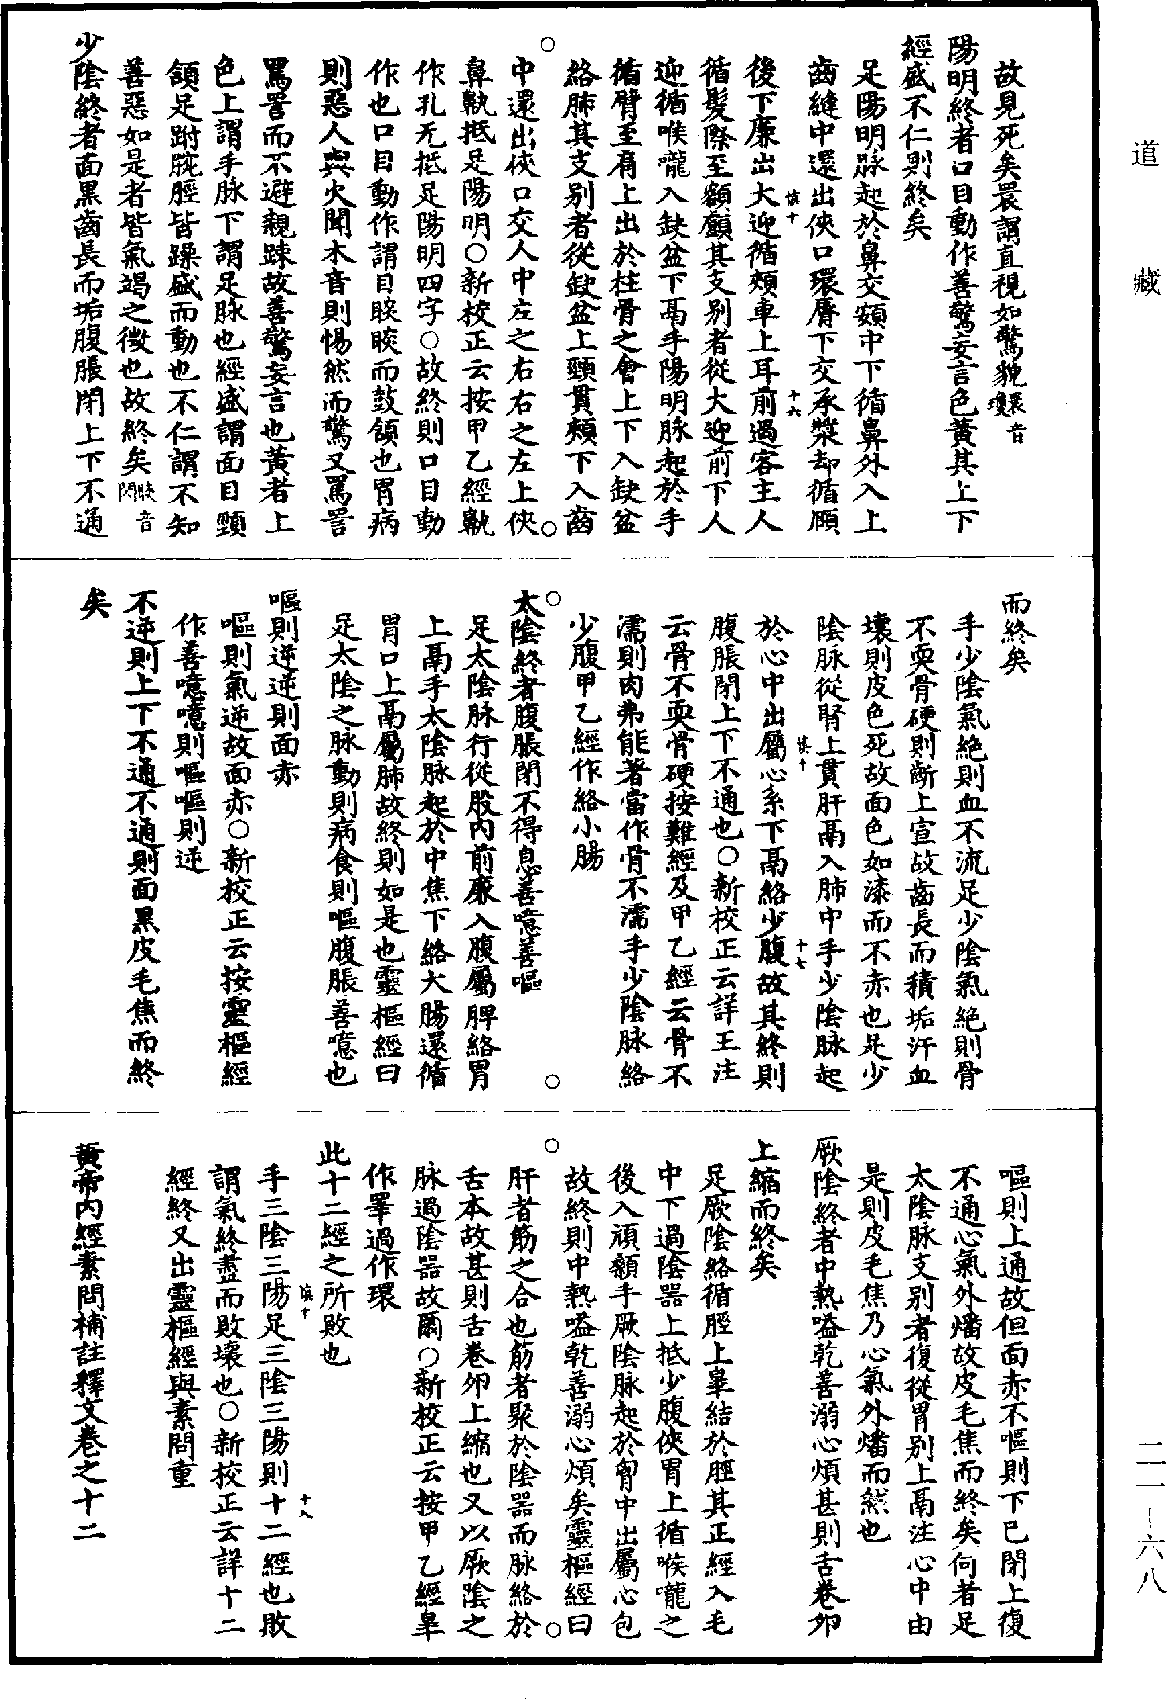 道藏
故見死矣瞏謂直視如驚貌瞏音瓊
陽明終者口目動作善驚妄言色黃其上下
經盛不仁則終矣
足陽明脉起於鼻交頞中下循鼻外入上
齒縫中還出俠口環脣下交承漿却循頤
後下廉出大迎循頰車上耳前過客主人
循髮際至額顱其支別者從大迎前下人
迎循喉嚨入缺盆下鬲手陽明脉起於手
循臂至肩上出於柱骨之會上下入缺盆
絡肺其支別者從缺盆上頸貫頰下入齒
中還出俠口交人中左之右右之左上俠
鼻鼽抵足陽明○新校正云按甲乙經鼽
作孔无抵足陽明四字○故終則口目動
作也口目動作謂目睒睒而鼓頷也胃病
則惡人與火聞木音則惕然而驚又罵詈
罵詈而不避親踈故善驚妄言也黃者上
色上謂手脉下謂足脉也經盛謂面目頸
頷足跗腕脛皆躁盛而動也不仁謂不知
善惡如是者皆氣竭之徵也故終矣睒音閃
少陰終者面黑齒長而垢腹脹閉上下不通
而終矣
手少陰氣絕則血不流足少陰氣絕則骨
不耎骨硬則齗上宣故齒長而積垢汗血
壞則皮色死故面色如漆而不赤也足少
陰脉從腎上貫肝鬲入肺中手少陰脉起
於心中出屬心系下鬲絡少腹故其終則
腹脹閉上下不通也○新校正云詳王注
云骨不耎骨硬按難經及甲乙經云骨不
濡則肉弗能著當作骨不濡手少陰脉絡
少腹甲乙經作絡小腸
太陰終者腹脹閉不得息善噫善嘔
足太陰脉行從股內前廉入腹屬脾絡胃
上鬲手太陰脉起於中焦下絡大腸還循
胃口上鬲屬肺故終則如是也靈樞經曰
足太陰之脉動則病食則嘔腹脹善噫也
嘔則逆逆則面赤
嘔則氣逆故面赤○新校正云按靈樞經
作善噫噫則嘔嘔則逆
不逆則上下不通不通則面黑皮毛焦而終
矣
嘔則上通故但面赤不嘔則下已閉上復
不通心氣外燔故皮毛焦而終矣何者足
太陰脉支別者復從胃別上鬲注心中由
是則皮毛焦乃心氣外燔而然也
厥陰終者中熱嗌乾善溺心煩甚則舌卷卵
上縮而終矣
足厥陰絡循脛上睾結於脛其正經入毛
中下過陰器上抵少腹俠胃上循喉嚨之
後入頏顙手厥陰脉起於胷中出屬心包
故終則中熱嗌乾善溺心煩矣靈樞經曰
肝者筋之合也筋者聚於陰器而脉絡於
舌本故甚則舌卷卵上縮也又以厥陰之
脉過陰器故爾○新校正云按甲乙經睾
作睪過作環
此十二經之所敗也
手三陰三陽足三陰三陽則十二經也敗
謂氣終盡而敗壞也○新校正云詳十二
經終又出靈樞經與素問重
黃帝內經素問補註釋文卷之十二
二一－六八